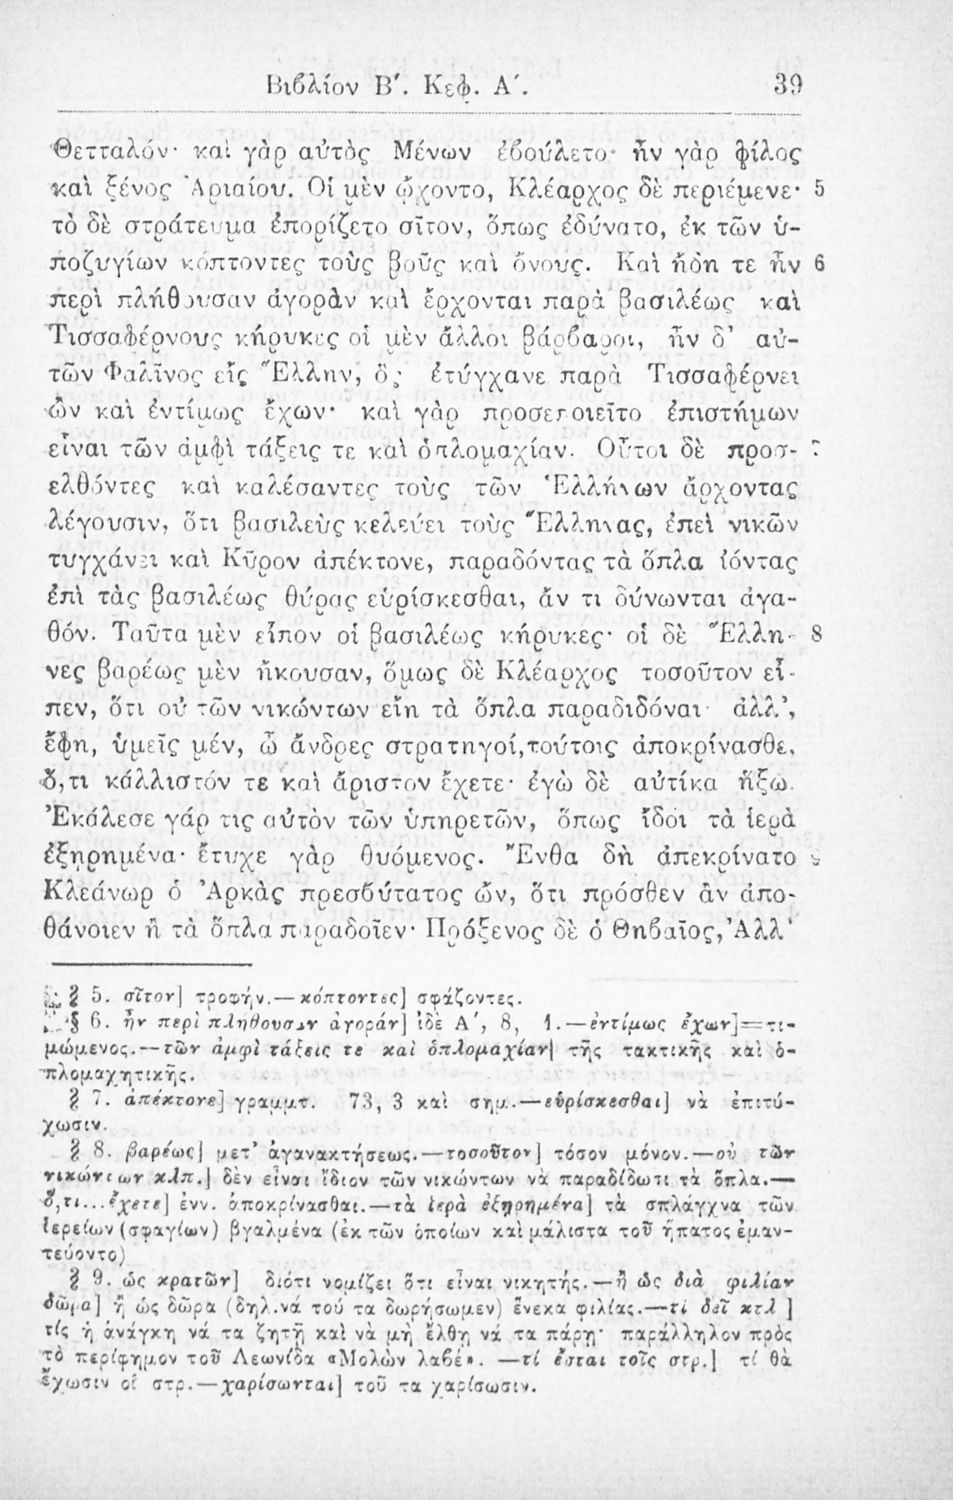 Βιβλίον Β΄. Κεφ. Α΄. 39
Θετταλόν· καὶ γὰρ αὐτὸς Μένων ἐβούλετο· ἦν γὰρ φίλος
καὶ ξένος Ἀριαίου. Οἱ μὲν ᾤχοντο, Κλέαρχος δὲ περιέμενε· 5
τὸ δὲ στράτευμα ἐπορίζετο σῖτον, ὅπως ἐδύνατο, ἐκ τῶν ὑ-
ποζυγίων κόπτοντες τοὺς βοῦς καὶ ὄνους. Καὶ ἤδη τε ἦν 6
περὶ πλήθουσαν ἀγορὰν καὶ ἔρχονται παρὰ βασιλέως καὶ
Τισσαφέρνους κήρυκες οἱ μὲν ἄλλοι βάρβαροι, ἦν δ' αὐ-
τῶν Φαλῖνος εἷς Ἕλλην, ὃς ἐτύγχανε παρὰ Τισσαφέρνει
ὢν καὶ ἐντίμως ἔχων· καὶ γὰρ προσεποιεῖτο ἐπιστήμων
εἶναι τῶν ἀμφὶ τάξεις τε καὶ ὁπλομαχίαν. Οὗτοι δὲ προσ- 7
ελθόντες καὶ καλέσαντες τοὺς τῶν Ἑλλήνων ἄρχοντας
λέγουσιν, ὅτι βασιλεὺς κελεύει τοὺς Ἕλληνας, ἐπεὶ νικῶν
τυγχάνει καὶ Κῦρον ἀπέκτονε, παραδόντας τὰ ὅπλα ἰόντας
ἐπὶ τὰς βασιλέως θύρας εὑρίσκεσθαι, ἄν τι δύνωνται ἀγα-
θόν. Ταῦτα μὲν εἶπον οἱ βασιλέως κήρυκες· οἱ δὲ Ἕλλη- 8
νες βαρέως μὲν ἤκουσαν, ὅμως δὲ Κλέαρχος τοσοῦτον εἶ-
πεν, ὅτι οὐ τῶν νικώντων εἴη τὰ ὅπλα παραδιδόναι· ἀλλ',
ἔφη, ὑμεῖς μέν, ὦ ἄνδρες στρατηγοί, τούτοις ἀποκρίνασθε,
ὅ,τι κάλλιστόν τε καὶ ἄριστον ἔχετε· ἐγὼ δὲ αὐτίκα ἥξω.
Ἐκάλεσε γάρ τις αὐτὸν τῶν ὑπηρετῶν, ὅπως ἴδοι τὰ ἱερὰ
ἐξῃρημένα· ἔτυχε γὰρ θυόμενος. Ἔνθα δὴ ἀπεκρίνατο 9
Κλεάνωρ ὁ Ἀρκὰς πρεσβύτατος ὤν, ὅτι πρόσθεν ἂν ἀπο-
θάνοιεν ἢ τὰ ὅπλα παραδοῖεν· Πρόξενος δὲ ὁ Θηβαῖος, Ἀλλ'
§ 5. σῖτον] τροφήν.—κόπτοντες] σφάζοντες.
§ 6. ἦν περὶ πλήθουσαν ἀγοράν] ἰδὲ Α΄, 8, 1.—ἐντίμως ἔχων]=τι-
μώμενος.—τῶν ἀμφὶ τάξεις τε καὶ ὁπλομαχίαν] τῆς τακτικῆς καὶ ὁ-
πλομαχητικῆς.
§ 7. ἀπέκτονε] γραμμτ. 73, 3 καὶ σημ.—εὑρίσκεσθαι] νὰ ἐπιτύ-
χωσιν.
§ 8. βαρέως] μετ' ἀγανακτήσεως.—τοσοῦτον] τόσον μόνον.—οὐ τῶν
νικώντων κλπ.] δὲν εἶναι ἴδιον τῶν νικώντων νὰ παραδίδωσι τὰ ὅπλα.—
ὅ,τι...ἔχετε] ἐνν. ἀποκρίνασθαι.—τὰ ἱερὰ ἐξῃρημένα] τὰ σπλάγχνα τῶν
ἱερείων (σφαγίων) βγαλμένα (ἐκ τῶν ὁποίων καὶ μάλιστα τοῦ ἥπατος ἐμαν-
τεύοντο)
§ 9. ὡς κρατῶν] διότι νομίζει ὅτι εἶναι νικητής.—ἢ ὡς διὰ φιλίαν
δῶρα] ἢ ὡς δῶρα (δηλ. νά τού τα δωρήσωμεν) ἕνεκα φιλίας.—τί δεῖ κτλ]
τίς ἡ ἀνάγκη νά τα ζητῇ καὶ νὰ μὴ ἔλθῃ νά τα πάρῃ· παράλληλον πρὸς
τὸ περίφημον τοῦ Λεωνίδα «Μολὼν λαβέ». —τί ἔσται τοῖς στρ.] τί θὰ
ἔχωσιν οἱ στρ.—χαρίσωνται] τοῦ τα χαρίσωσιν.